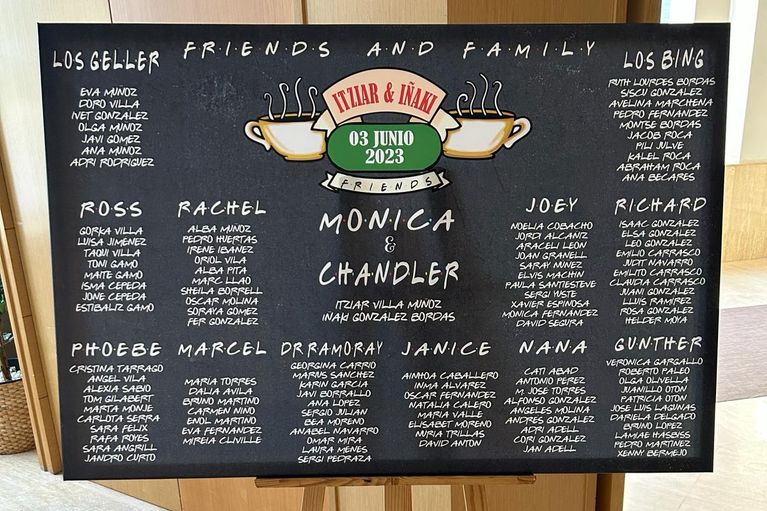 F·R·I·E·N·D·S AND F·A·M·I·L·Y
LOS GELLER
EVA MUÑOZ
DORO VILLA
IVET GONZALEZ
OLGA MUÑOZ
JAVI GOMEZ
ANA MUÑOZ
ADRI RODRIGUEZ
ITZIAR & IÑAKI
03 JUNIO
2023
F·R·I·E·N·D·S
LOS BING
RUTH LOURDES BORDAS
SISCU GONZALEZ
AVELINA MARCHENA
PEDRO FERNANDEZ
MONTSE BORDAS
JACOB ROCA
PILI JULVE
KALEL ROCA
ABRAHAM ROCA
ANA BECARES
R·O·S·S
GORKA VILLA
LUISA JIMENEZ
TAQUI VILLA
TONI GAMO
MAITE GAMO
ISMA CEPEDA
JONE CEPEDA
ESTIBALIZ GAMO
RACHEL
ALBA MUÑOZ
PEDRO HUERTAS
IRENE IBANEZ
ORIOL VILA
ALBA PITA
MARC LLAO
SHEILA BORRELL
OSCAR MOLINA
SORAYA GOMEZ
FER GONZALEZ
M·O·N·I·C·A
&
CHANDLER
ITZIAR VILLA MUÑOZ
IÑAKI GONZALEZ BORDAS
JOEY
NOELIA COBACHO
JORDI ALCANIZ
ARACELI LEON
JOAN GRANELL
SARAY NUÑEZ
ELVIS MACHIN
PAULA SANTIESTEVE
SERGI YUSTE
XAVIER ESPINOSA
MONICA FERNANDEZ
DAVID SEGURA
RICHARD
ISAAC GONZALEZ
ELSA GONZALEZ
LEO GONZALEZ
EMILIO CARRASCO
JUDIT NAVARRO
EMILITO CARRASCO
CLAUDIA CARRASCO
JUANI GONZALEZ
LLUIS RAMIREZ
ROSA GONZALEZ
HELDER MOYA
PHOEBE
CRISTINA TARRAGO
ANGEL VILA
ALEXIA SABIO
TOM GILABERT
MARTA MONJE
CARLOTA SERRA
SARA FELIX
RAFA ROYES
SARA ANGRILL
JANDRO CURTO
MARCEL
MARIA TORRES
DALIA AVILA
BRUNO MARTINO
CARMEN NINO
ENOL MARTINO
EVA FERNANDEZ
MIREIA CLIVILLE
DR RAMORAY
GEORGINA CARRIO
MARIUS SANCHEZ
KARIN GARCIA
JAVI BORRALLO
ANA LOPEZ
SERGIO JULIAN
BEA MORENO
ANABEL NAVARRO
OMAR MIRA
LAURA MENES
SERGI PEDRAZA
JANICE
AINHOA CABALLERO
INMA ALVAREZ
OSCAR FERNANDEZ
NATALIA CALERO
MARIA VALLE
ELISABET MORENO
NURIA TRILLAS
DAVID ANTON
NANA
CATI ABAD
ANTONIO PEREZ
M. JOSE TORRES
ALFONSO GONZALEZ
ANGELES MOLINA
ANDRES GONZALEZ
ADRI ADELL
CORI GONZALEZ
JAN ADELL
GUNTHER
VERONICA GARGALLO
ROBERTO PALEO
OLGA OLIVELLA
JUANILLO OTON
PATRICIA OTON
JOSE LUIS LAGUNAS
DANIELA DELGADO
BRUNO LOPEZ
LAMIAE HASBYSS
PEDRO MARTINEZ
XENNY BERMEJO